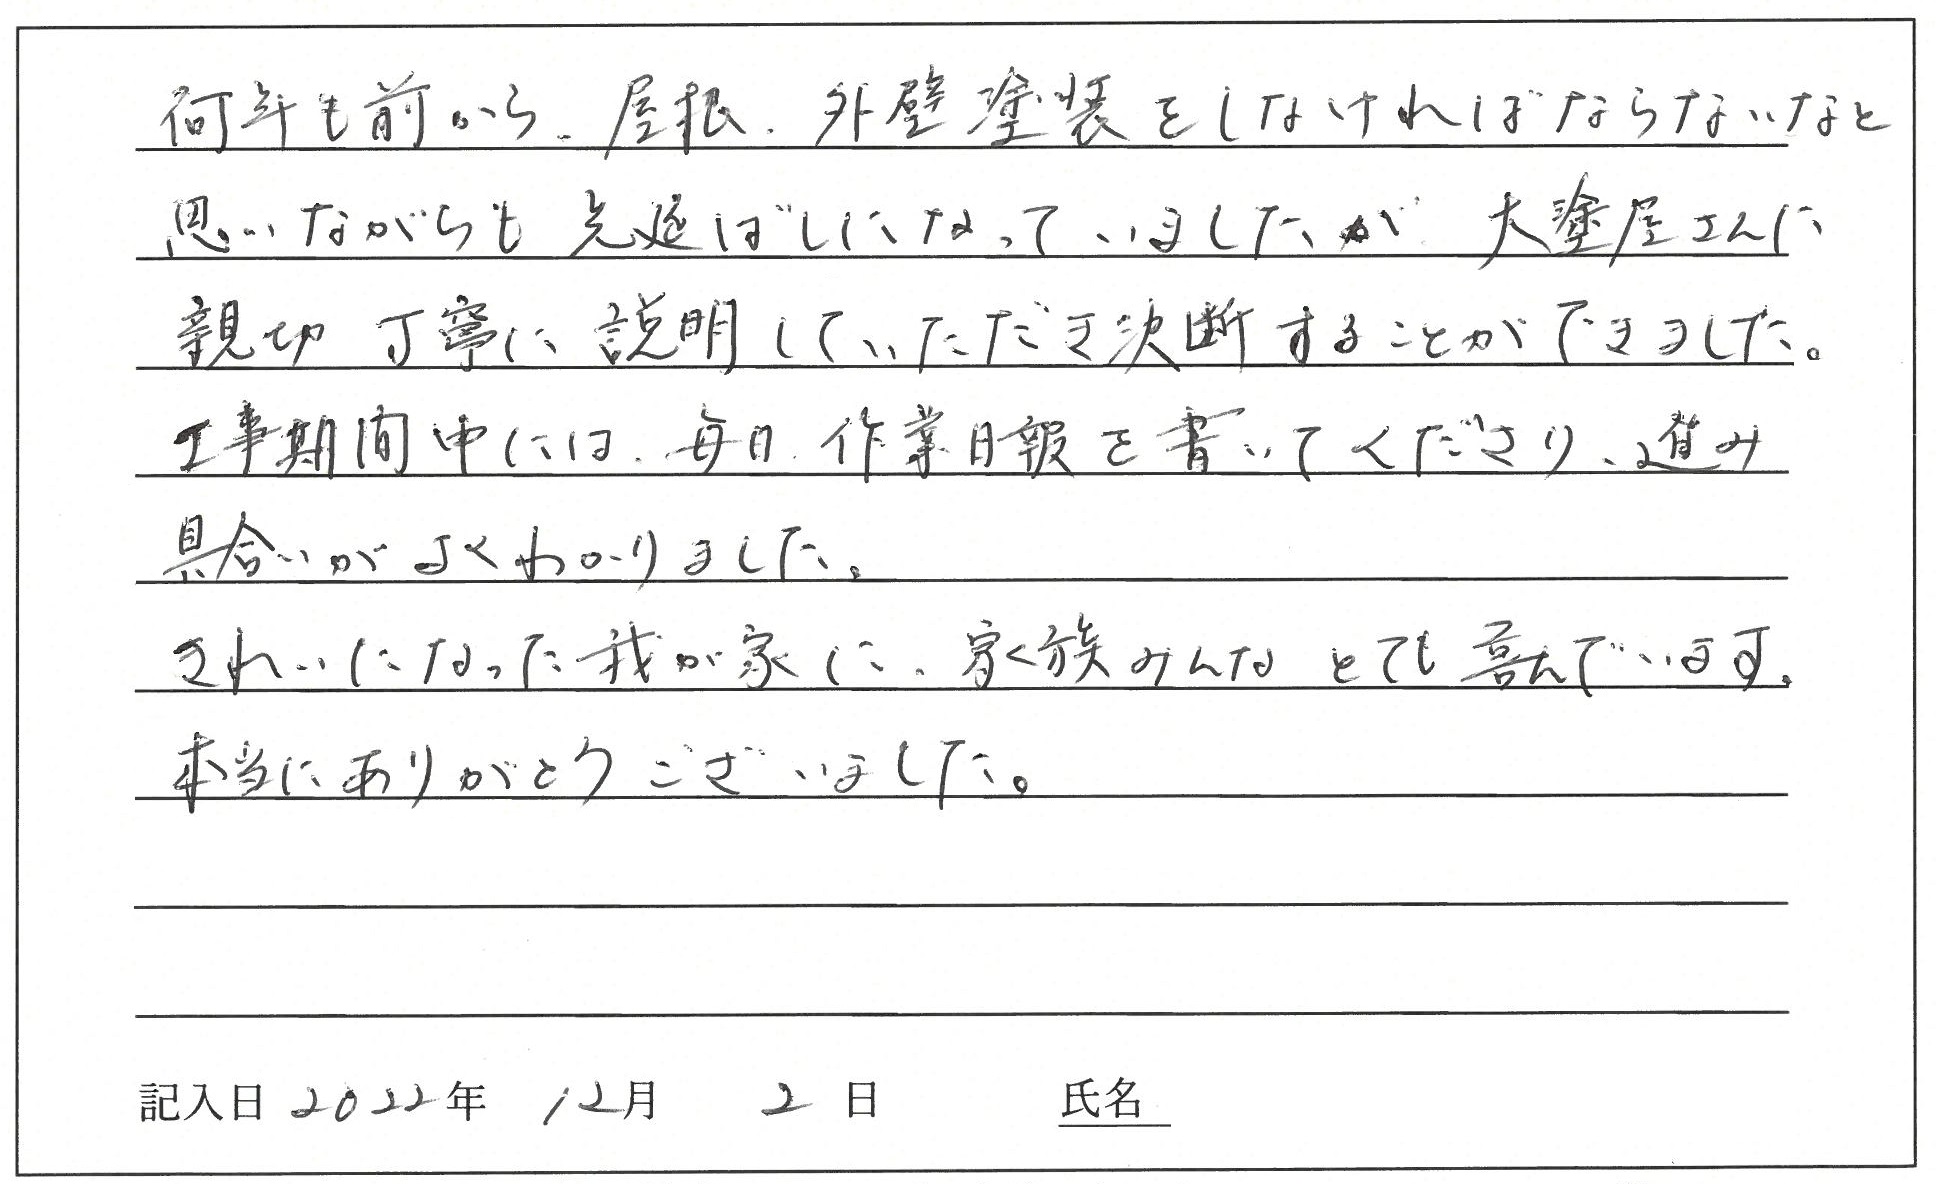 何年も前から、屋根、外壁塗装をしなければならないなと
思いながらも先延ばしになっていましたが 大塗屋さんに
親切丁寧に説明していただき決断することができました。
工事期間中には、毎日、作業日報を書いてくださり、進み
具合いがよくわかりました。
きれいになった我が家に、家族みんなとても喜んでいます。
本当にありがとうございました。
記入日 2022年 12月 2日 氏名